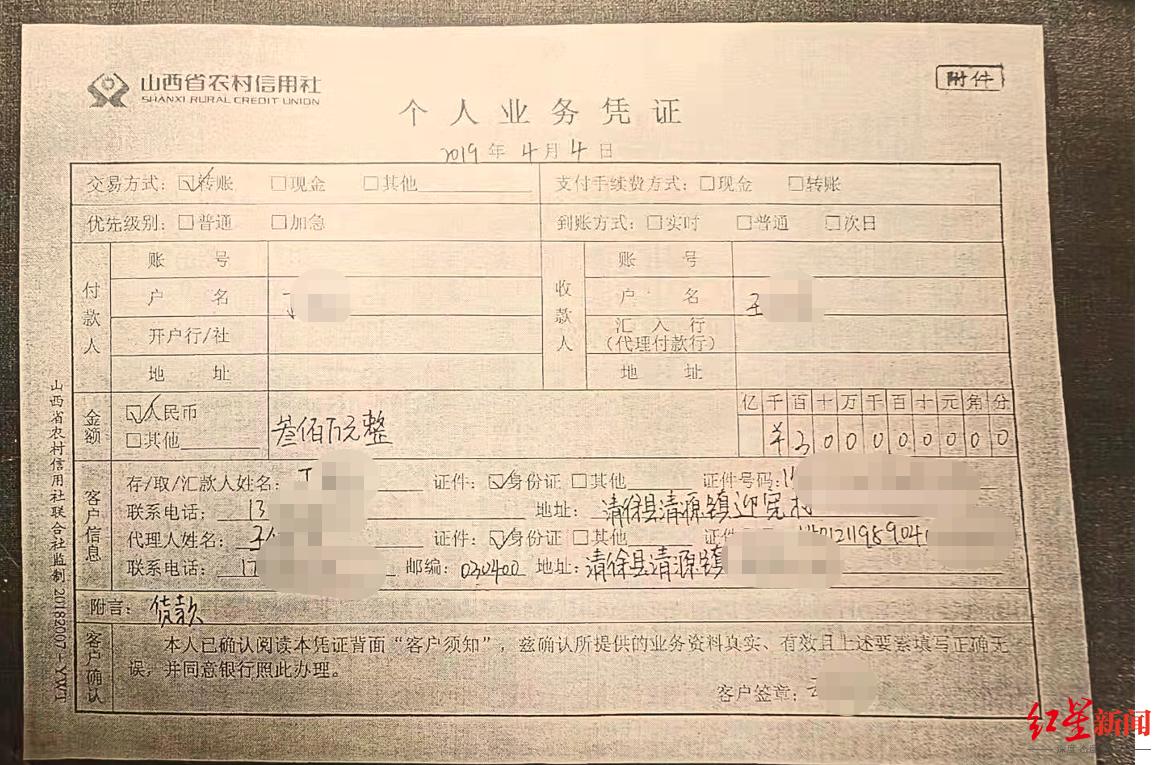 山西省农村信用社
SHANXI RURAL CREDIT UNION
附件
个人业务凭证
2019年4月4日
交易方式：☑转账 □现金 □其他 支付手续费方式：□现金 □转账
优先级别：□普通 □加急 到账方式：□实时 □普通 □次日
付款人 账号 收款人 账号
户名 户名 王
开户行/社 汇入行
（代理付款行）
地址 地址
金额 ☑人民币 亿千百十万千百十元角分
□其他 叁佰万元整 ¥300000000
客户信息 存/取/汇款人姓名： 证件：☑身份证 □其他 证件号码：
联系电话：13 地址：清徐县清源镇迎宪村
代理人姓名：王 证件：☑身份证 □其他 证件
联系电话：17 邮编：030400 地址：清徐县清源镇
附言：货款
客户确认 本人已确认阅读本凭证背面“客户须知”，兹确认所提供的业务资料真实、有效且上述要素填写正确无
误，并同意银行照此办理。
客户签章：
山西省农村信用社联合社监制 20182007-YWT
红星新闻